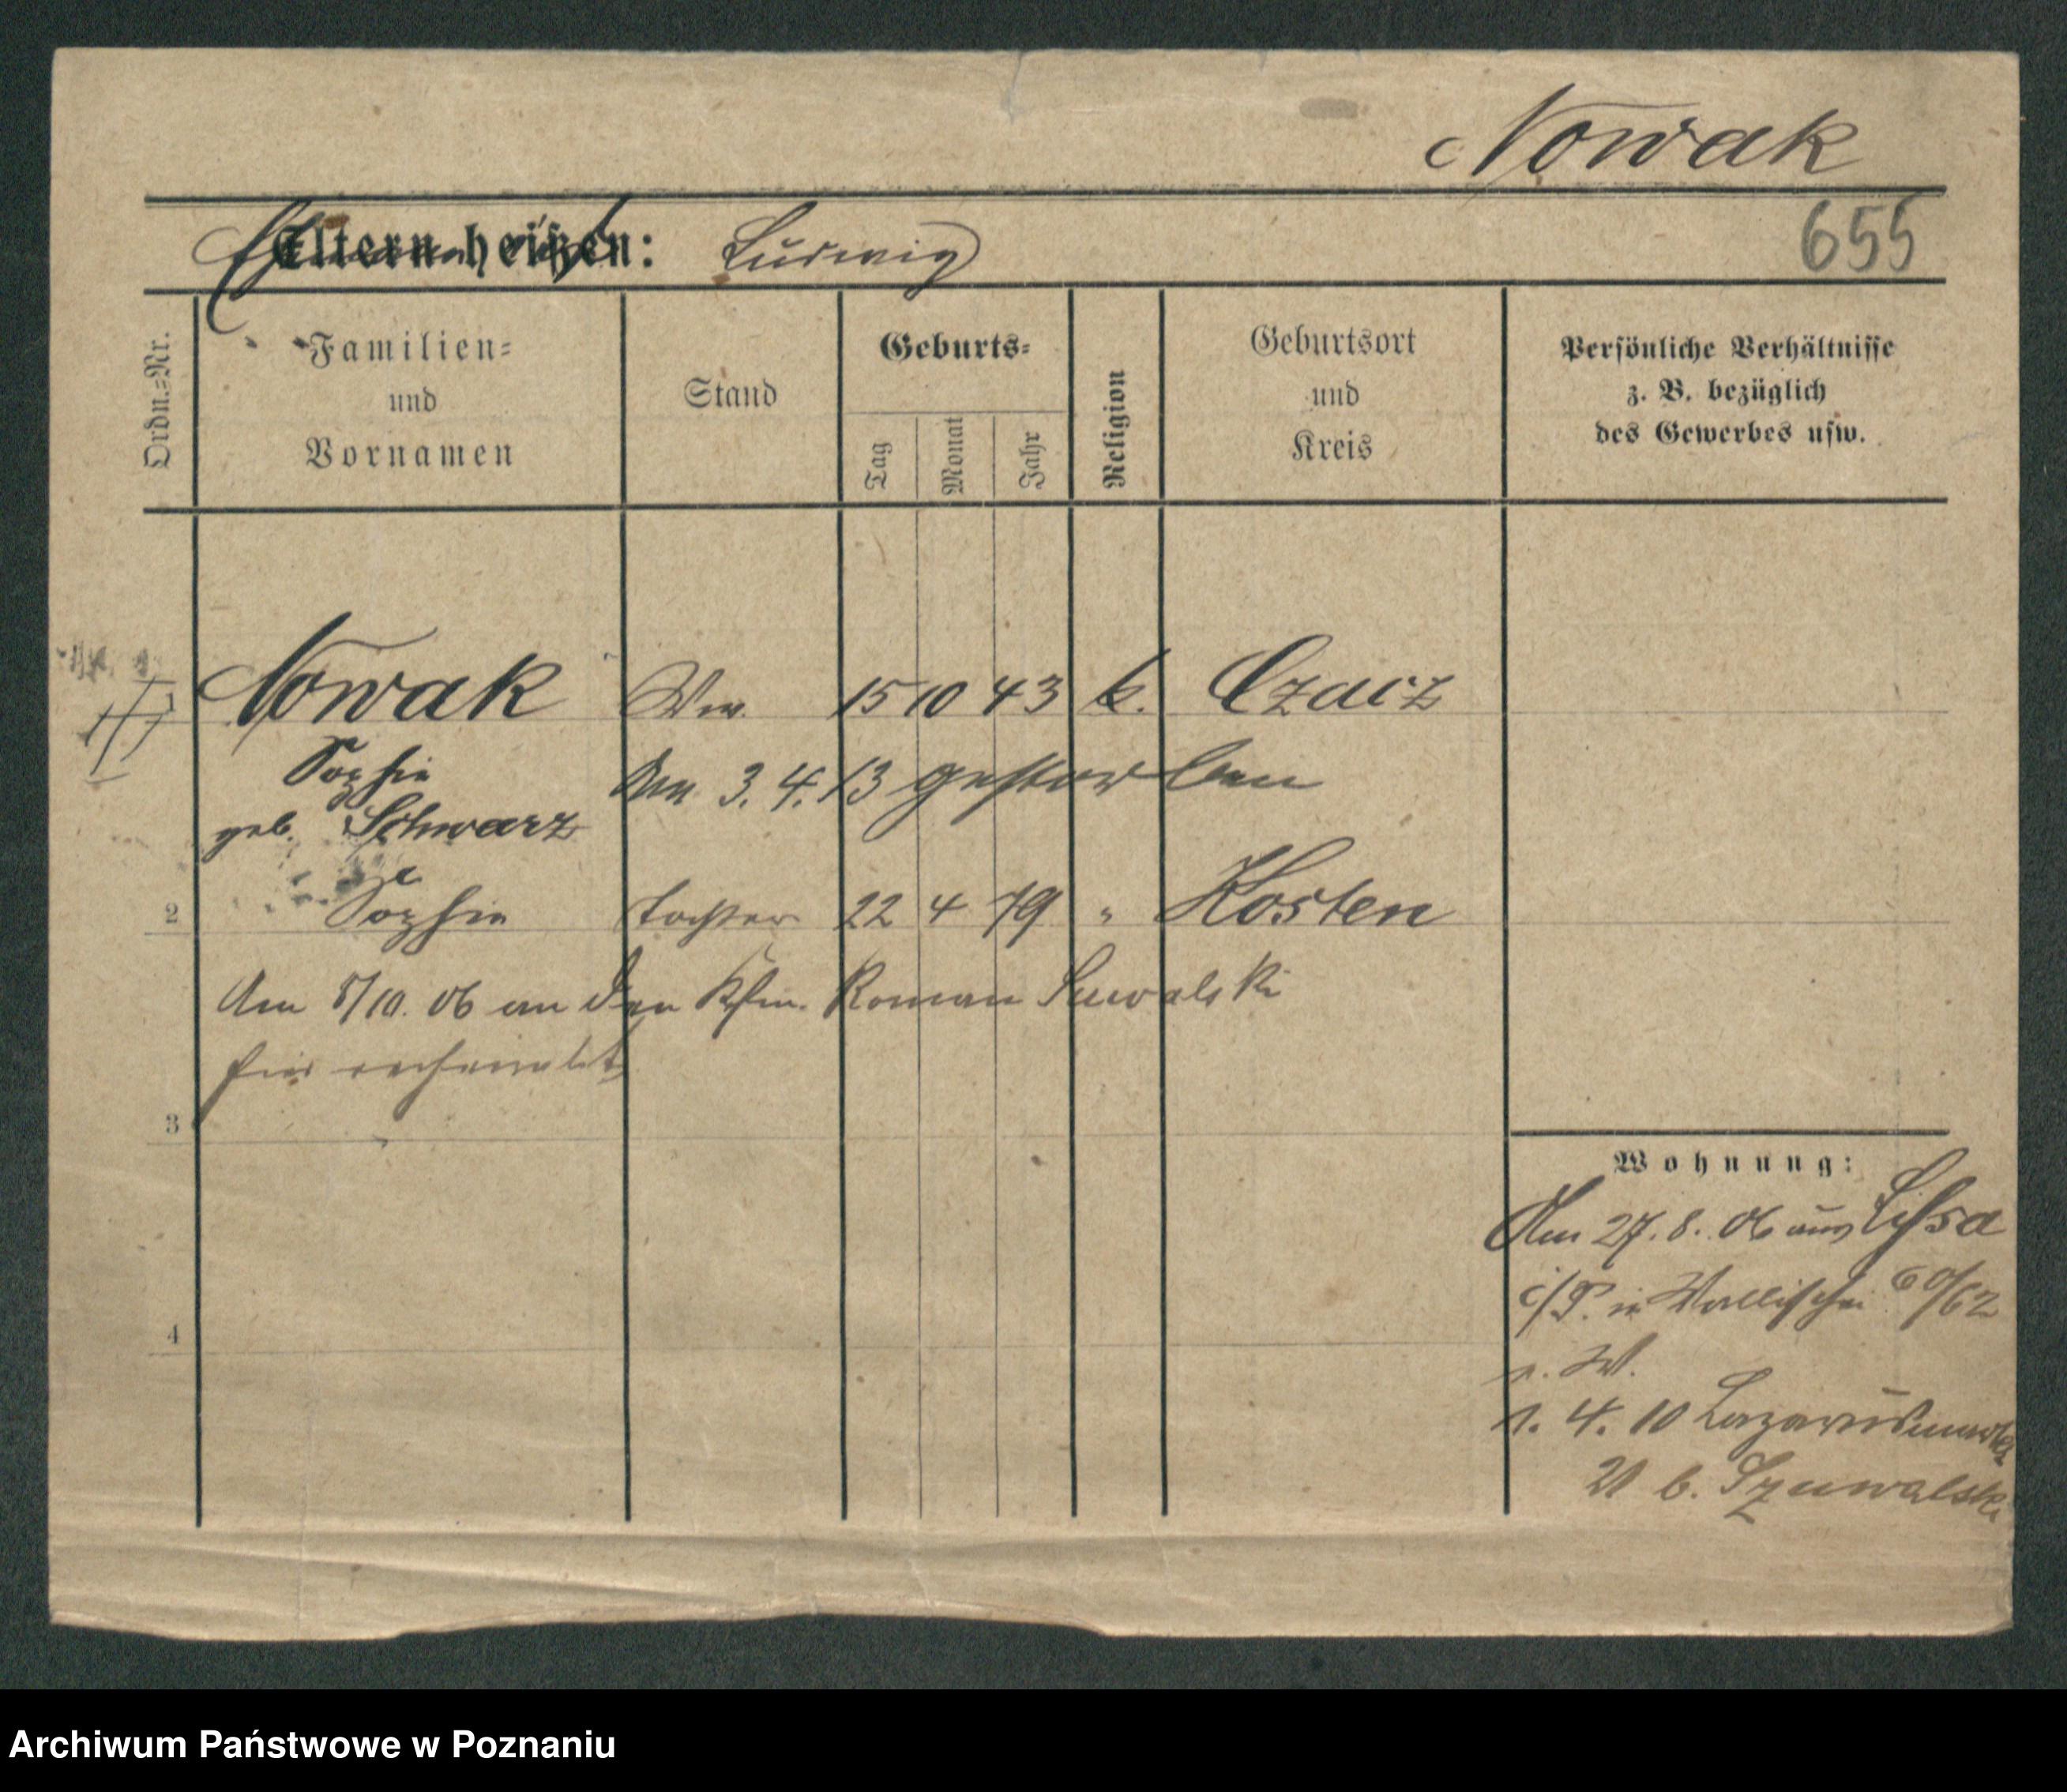 Nowak
Eltern heißen: Ludwig
655
Ordn.=Nr.
Familien=
und
Vornamen
Stand
Geburts=
Tag
Monat
Jahr
Religion
Geburtsort
und
Kreis
Persönliche Verhältnisse
z. B. bezüglich
des Gewerbes usw.
Nowak Ww. 15 10 43 k. Czacz
Sophie Am 3. 4. 13 gestorben
geb. Schwarz
2 Sophie Tochter 22 4 79 " Kosten
Am 8/10. 06 an den Kfm. Roman Suwalski
hier verheiratet
3
4
Wohnung:
Am 27. 8. 06 aus Lissa
i/P. in Wallischei 60/62
n. W.
1. 4. 10 Lazarusmarkt
b. Szuwalski
Archiwum Państwowe w Poznaniu